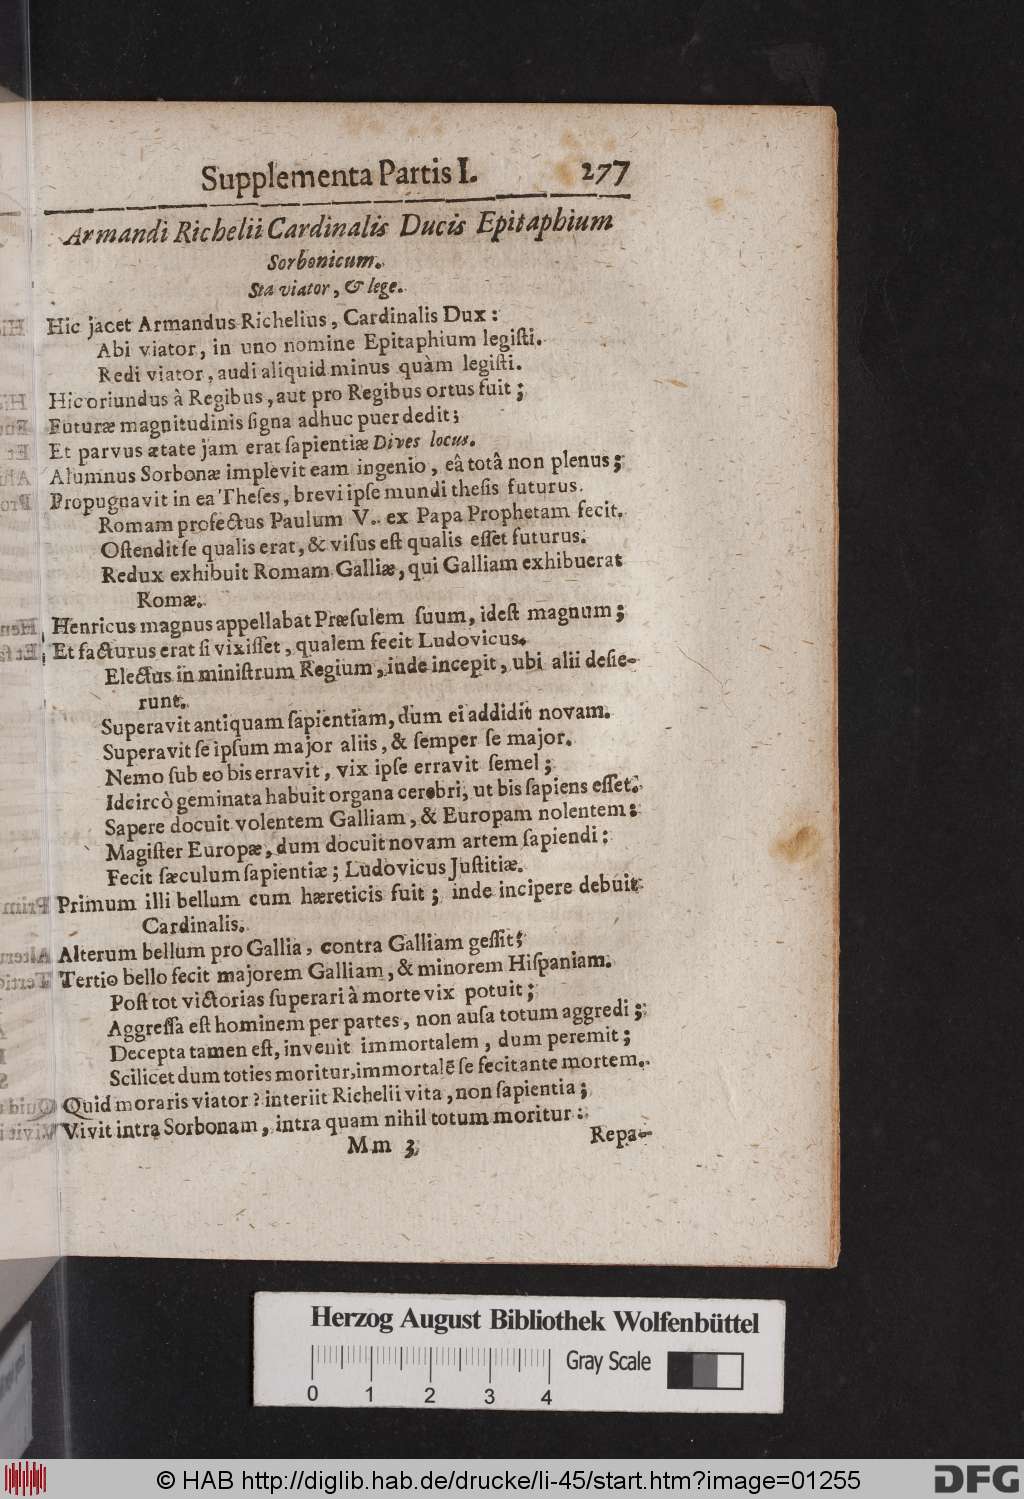 Supplementa Partis I. 277
Armandi Richelii Cardinalis Ducis Epitaphium
Sorbonicum.
Sta viator, & lege.
Hic jacet Armandus Richelius, Cardinalis Dux:
Abi viator, in uno nomine Epitaphium legiſti.
Redi viator, audi aliquid minus quàm legiſti.
Hic oriundus à Regibus, aut pro Regibus ortus fuit;
Futuræ magnitudinis ſigna adhuc puer dedit;
Et parvus ætate jam erat ſapientiæ Dives locus.
Alumnus Sorbonæ implevit eam ingenio, eâ totâ non plenus;
Propugnavit in ea Theſes, brevi ipſe mundi theſis futurus.
Romam profectus Paulum V. ex Papa Prophetam fecit.
Oſtendit ſe qualis erat, & viſus eſt qualis eſſet futurus.
Redux exhibuit Romam Galliæ, qui Galliam exhibuerat
Romæ.
Henricus magnus appellabat Præſulem ſuum, ideſt magnum;
Et facturus erat ſi vixiſſet, qualem fecit Ludovicus.
Electus in miniſtrum Regium, inde incepit, ubi alii deſie-
runt.
Superavit antiquam ſapientiam, dum ei addidit novam.
Superavit ſe ipſum major aliis, & ſemper ſe major.
Nemo ſub eo bis erravit, vix ipſe erravit ſemel;
Idcircò geminata habuit organa cerebri, ut bis ſapiens eſſet.
Sapere docuit volentem Galliam, & Europam nolentem:
Magiſter Europæ, dum docuit novam artem ſapiendi:
Fecit ſæculum ſapientiæ; Ludovicus Juſtitiæ.
Primum illi bellum cum hæreticis fuit; inde incipere debuit
Cardinalis.
Alterum bellum pro Gallia, contra Galliam geſſit;
Tertio bello fecit majorem Galliam, & minorem Hiſpaniam.
Poſt tot victorias ſuperari à morte vix potuit;
Aggreſſa eſt hominem per partes, non auſa totum aggredi;
Decepta tamen eſt, invenit immortalem, dum peremit;
Scilicet dum toties moritur, immortalē ſe fecit ante mortem.
Quid moraris viator? interiit Richelii vita, non ſapientia;
Vivit intra Sorbonam, intra quam nihil totum moritur:
Mm 3 Repa-
Herzog August Bibliothek Wolfenbüttel
0 1 2 3 4 Gray Scale
© HAB http://diglib.hab.de/drucke/li-45/start.htm?image=01255 DFG